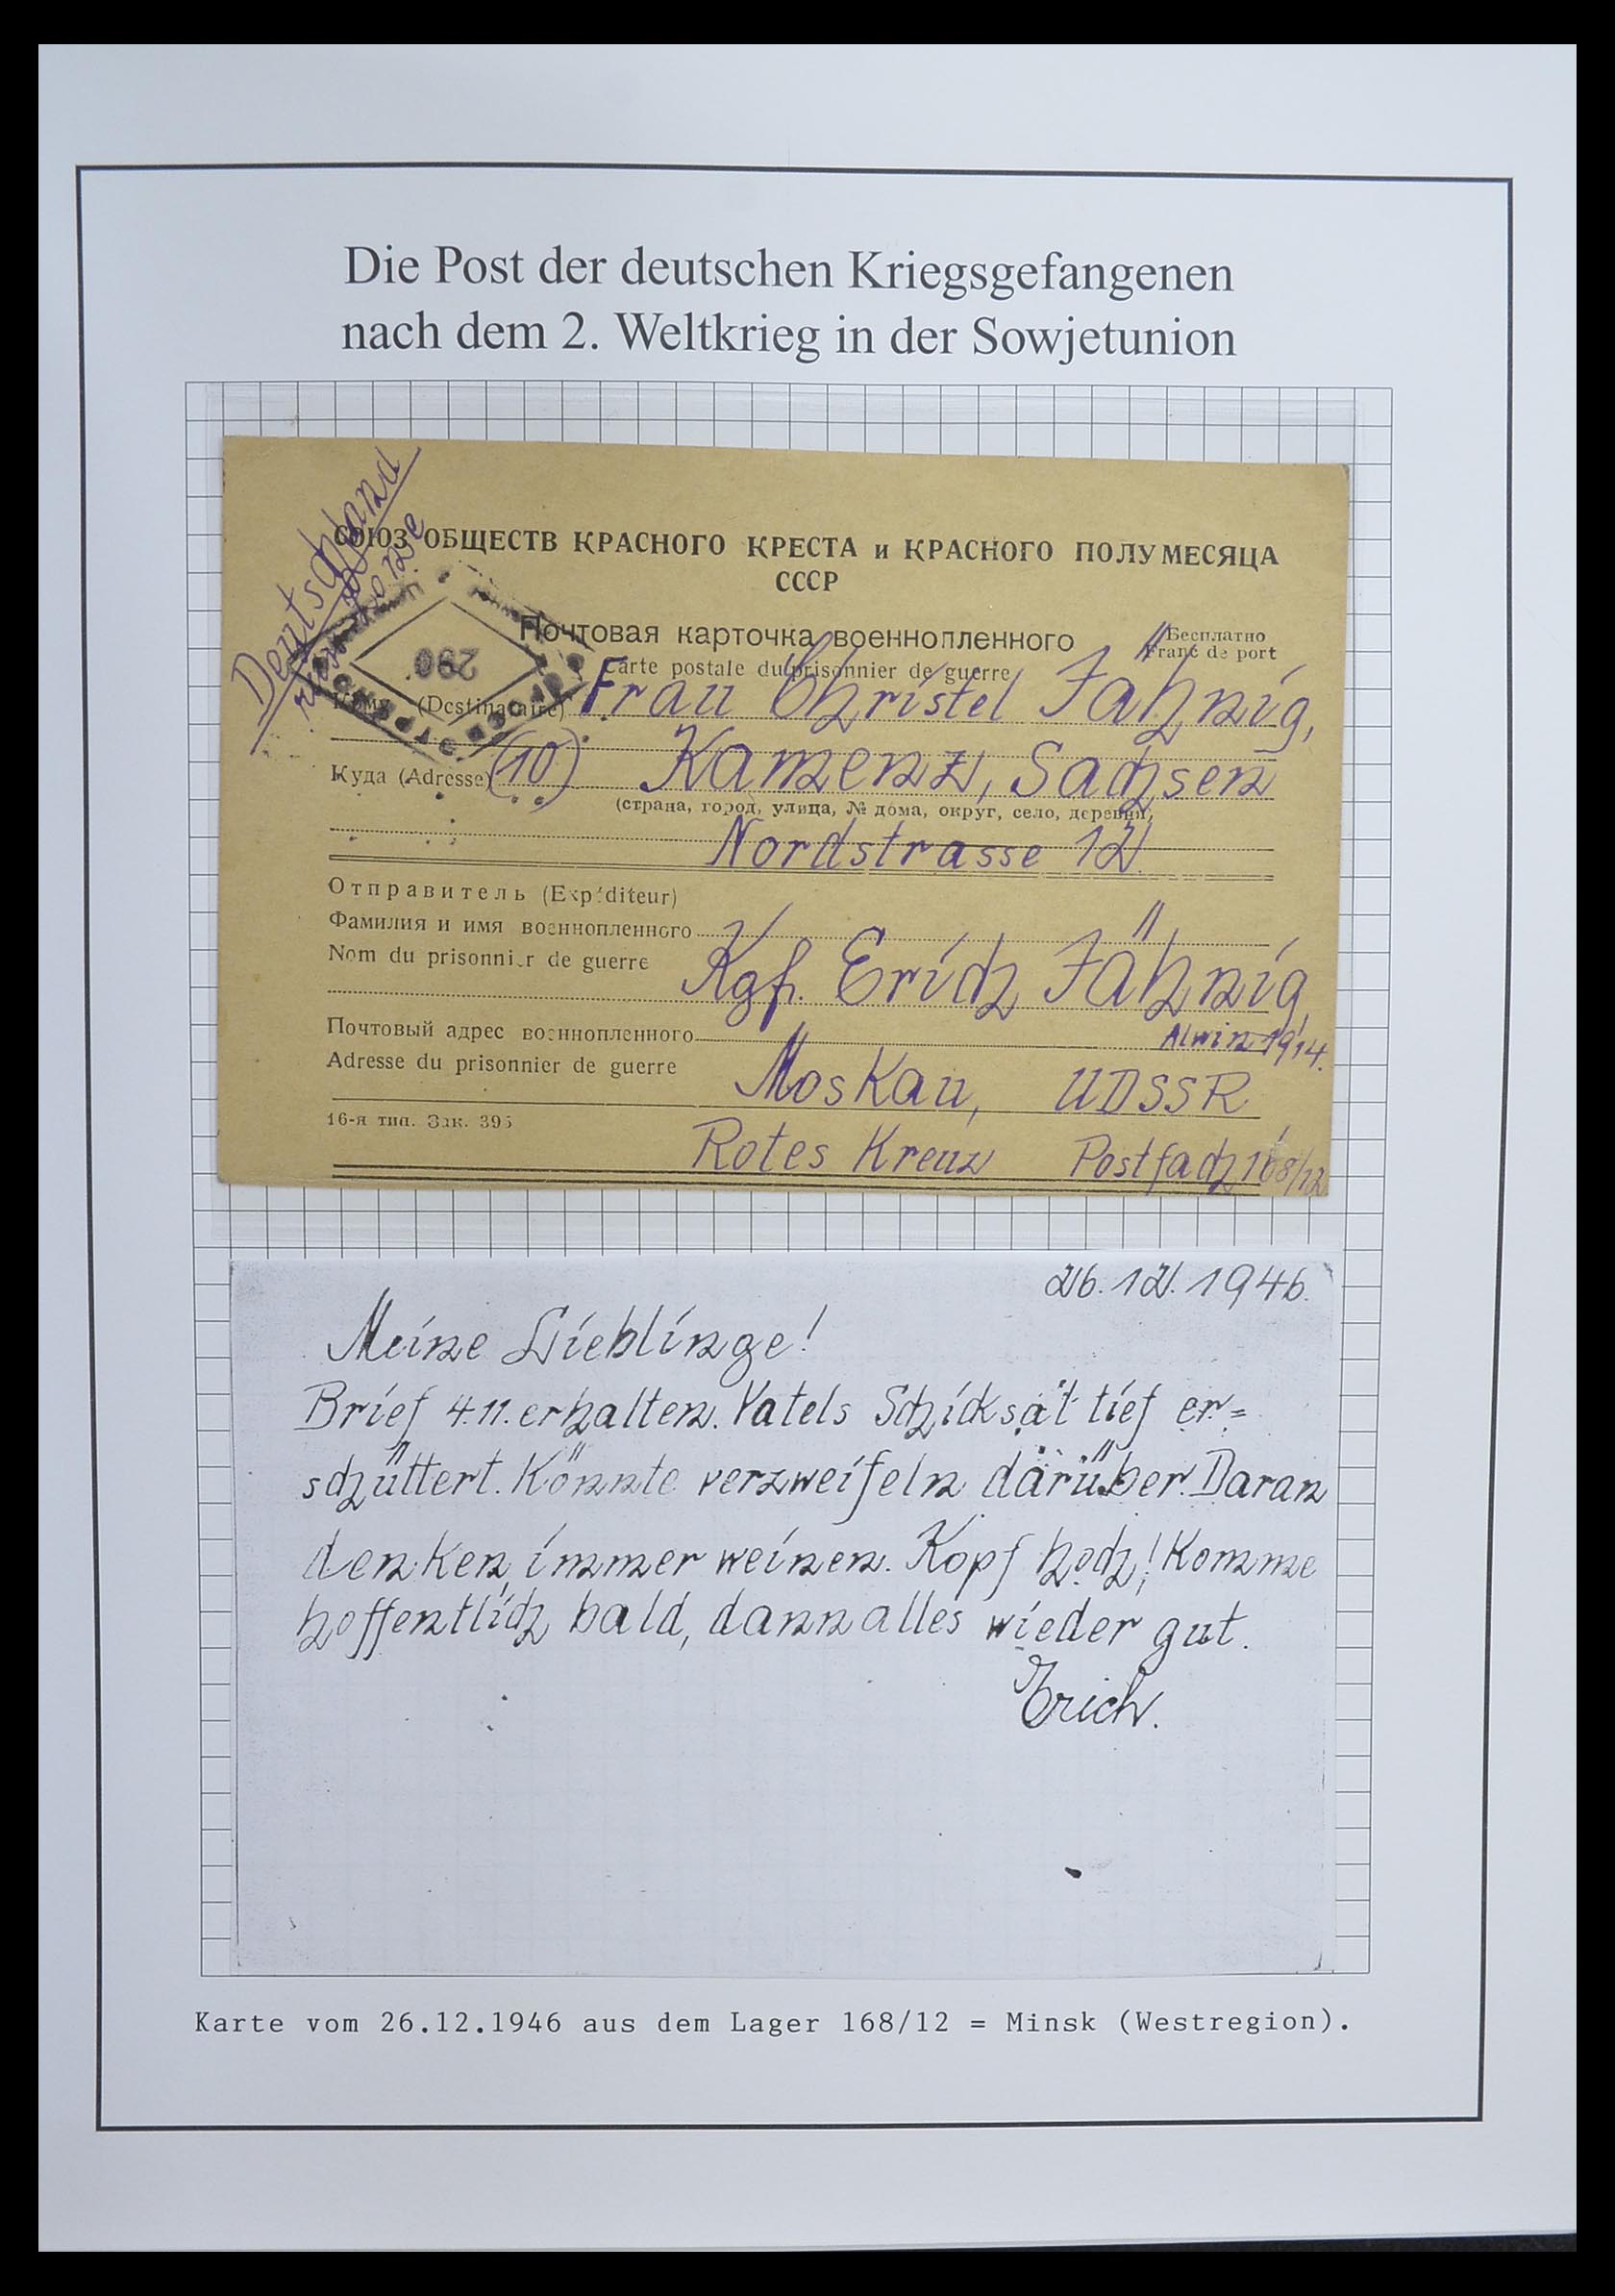 Die Post der deutschen Kriegsgefangenen
nach dem 2. Weltkrieg in der Sowjetunion
Deutschland
russ. Zone
СОЮЗ ОБЩЕСТВ КРАСНОГО КРЕСТА и КРАСНОГО ПОЛУМЕСЯЦА
СССР
Почтовая карточка военнопленного
Бесплатно
Carte postale du prisonnier de guerre
Franc de port
290
Кому (Destinataire) Frau Christel Jähnig,
Куда (Adresse) (10) Kamenz, Sachsen
(страна, город, улица, № дома, округ, село, деревня)
Nordstrasse 12
Отправитель (Expéditeur)
Фамилия и имя военнопленного
Nom du prisonnier de guerre Kgf. Erich Jähnig,
Alwin 1914.
Почтовый адрес военнопленного
Adresse du prisonnier de guerre Moskau, UDSSR
16-я тип. Зак. 395
Rotes Kreuz Postfach 168/12
26.12.1946.
Meine Lieblinge!
Brief 4.11. erhalten. Vatels Schicksal tief er=
schüttert. Könnte verzweifeln darüber. Daran
denken, immer weinen. Kopf hoch! Komme
hoffentlich bald, dann alles wieder gut.
Erich.
Karte vom 26.12.1946 aus dem Lager 168/12 = Minsk (Westregion).